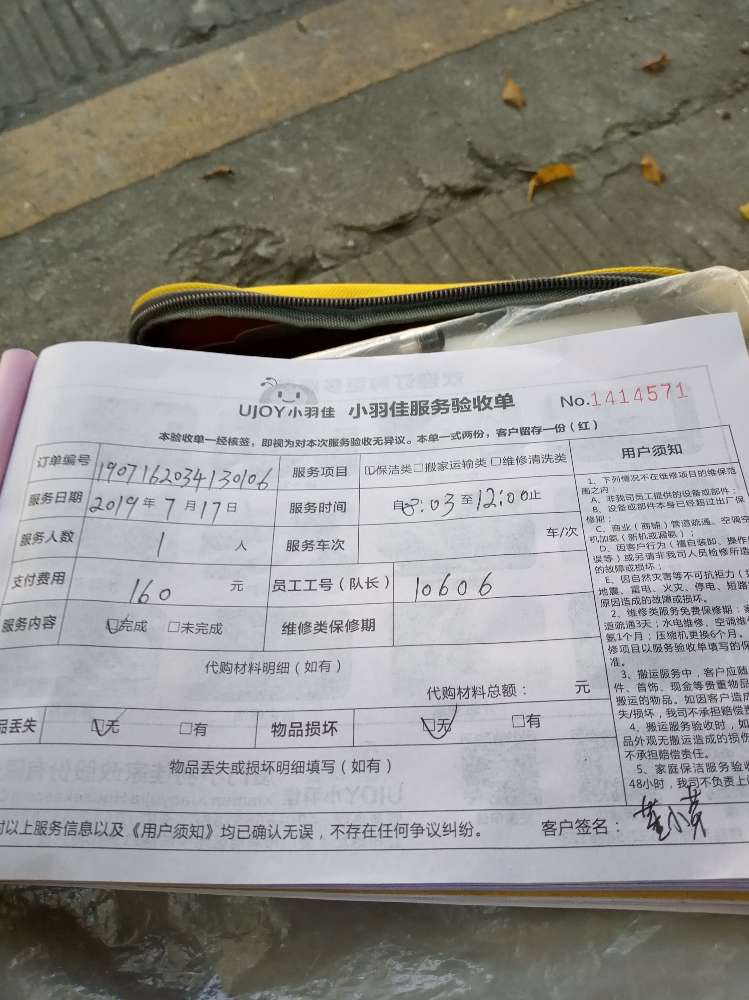 UJOY小羽佳 小羽佳服务验收单 No.1414571
本验收单一经核签，即视为对本次服务验收无异议。本单一式两份，客户留存一份（红）
订单编号 1907162034130106 服务项目 ☑保洁类□搬家运输类□维修清洗类
服务日期 2019年7月17日 服务时间 自8:03至12:00止
服务人数 1 人 服务车次 车/次
支付费用 160 元 员工工号（队长） 10606
服务内容 ☑完成 □未完成 维修类保修期
代购材料明细（如有）
代购材料总额： 元
品丢失 ☑无 □有 物品损坏 ☑无 □有
物品丢失或损坏明细填写（如有）
对以上服务信息以及《用户须知》均已确认无误，不存在任何争议纠纷。 客户签名：
用户须知
1、下列情况不在维修项目的维保范
围之内：
A、非我司员工提供的设备或部件；
B、设备或部件本身已经超过出厂保
修期；
C、商业（商铺）管道疏通、空调空
机加氨（新机或漏氨）；
D、因客户行为（擅自装卸、操作
误等）或另请非我司人员检修所造
的故障或损坏；
E、因自然灾害等不可抗拒力（
地震、雷电、火灾、停电、短路
原因造成的故障或损坏。
2、维修类服务免费保修期：
道疏通3天；水电维修、空调维
氨1个月；压缩机更换6个月。
修项目以服务验收单填写的保
准。
3、搬运服务中，客户应随
件、首饰、现金等贵重物品
搬运的物品。如因客户造成
失/损坏，我司不承担赔偿责
4、搬运服务验收时，如
品外观无搬运造成的损伤
不承担赔偿责任。
5、家庭保洁服务验收
48小时，我司不负责上